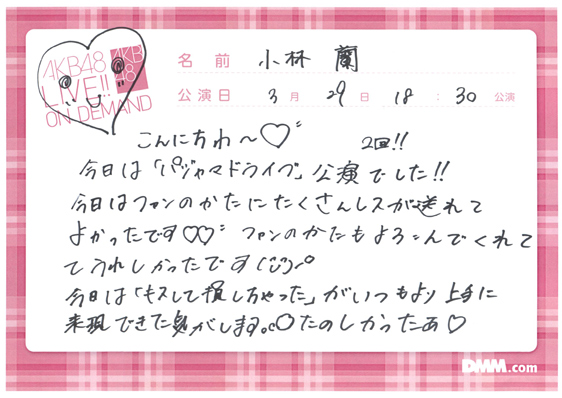 AKB48
LIVE!!
ON DEMAND
AKB
48
名前 小林 蘭
公演日 3月29日 18:30公演
こんにちわ～♡
2回!!
今日は「パジャマドライブ」公演でした!!
今日はファンのかたにたくさんレスが送れて
よかったです♡♡ ファンのかたもよろこんでくれて
てうれしかったです
今日は「キスして損しちゃった」がいつもより上手に
表現できた気がします。○たのしかったぁ♡
DMM.com